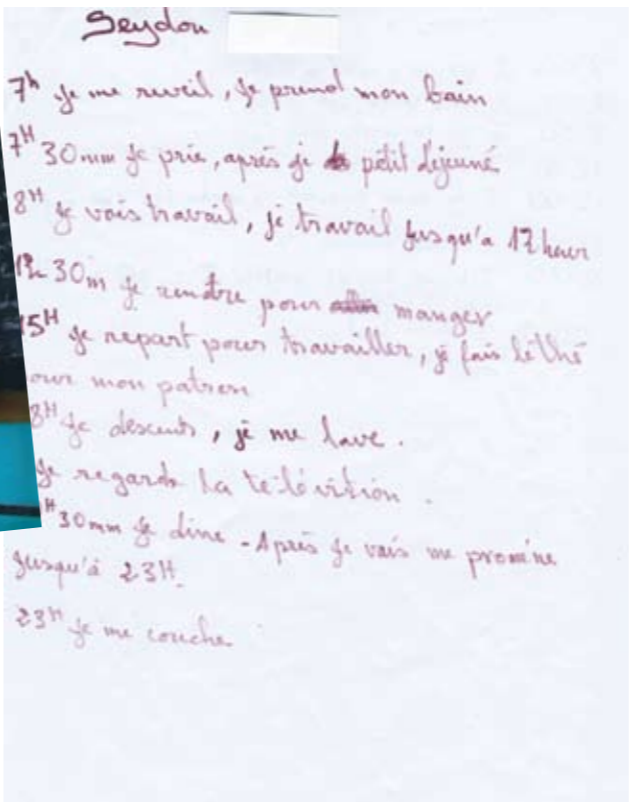 Seydou
7h je me reveil, je prend mon bain
7H 30mm je prie, après je petit déjeuné
8H je vais travail, je travail jusqu'a 12 heur
30m je rentre pour manger
15H je repart pour travailler, je fais le thé
our mon patron
8H je descends, je me lave.
je regarde la télévition.
H30mm je dine - Après je vais me promène
jusqu'à 23H.
23H je me couche